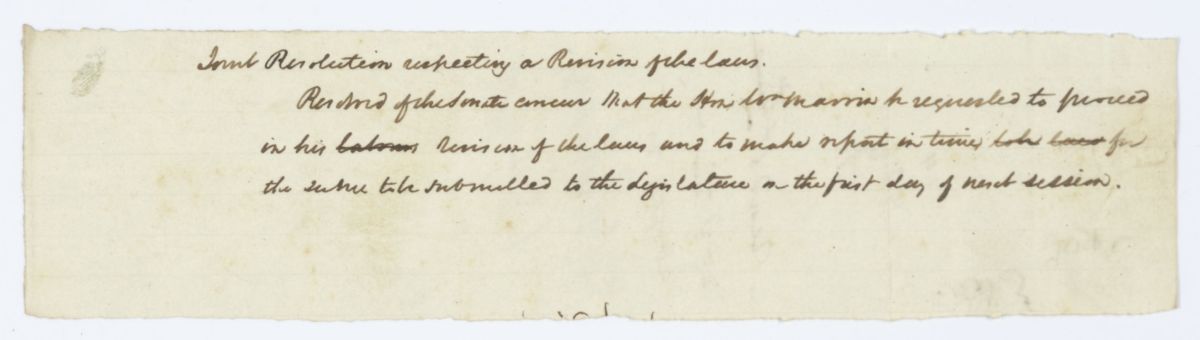 Joint Resolution respecting a Revision of the laws.
Resolved if the Senate concur That the Hon Wm Marvin be requested to proceed
in his labours revision of the laws and to make report in time to be laws for
the same to be submitted to the Legislature on the first day of next session.